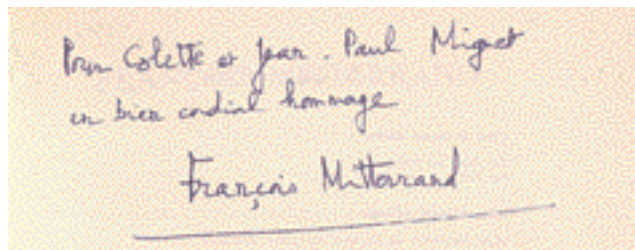 Pour Colette et Jean-Paul Mignot
en bien cordial hommage
François Mitterrand